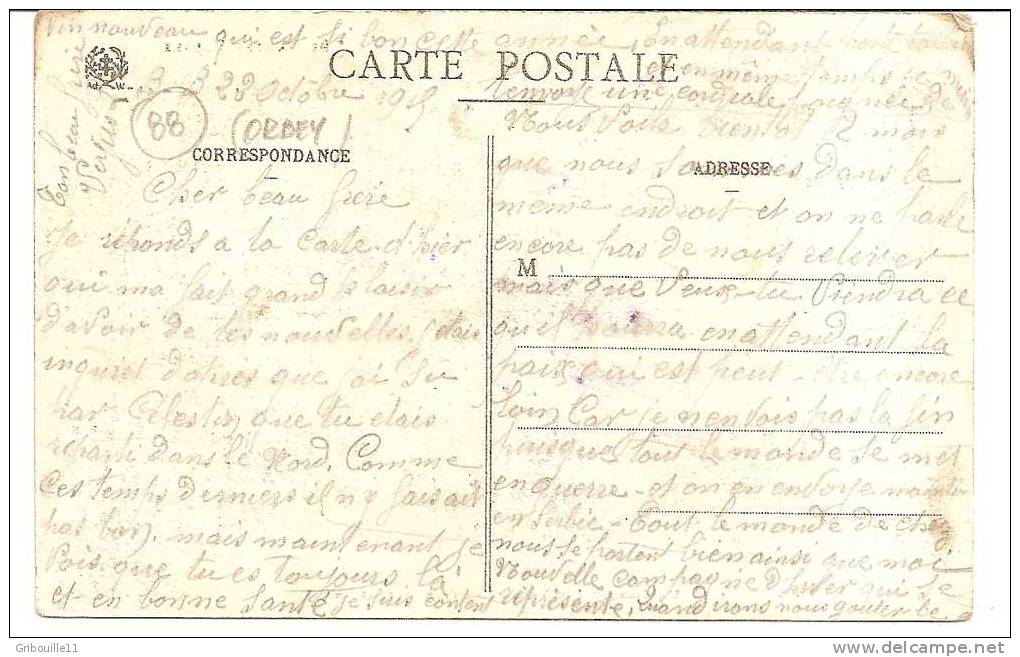 CARTE POSTALE
22 Octobre 1915
88
(ORBEY)
CORRESPONDANCE
ADRESSE
M
Cher beau frère
Je réponds a la carte d'hier
qui ma fait grand plaisir
d'avoir de tes nouvelles, j'étais
inquiet d'apres que j'ai su
par Célestin que tu étais
reparti dans le Nord. Comme
ces temps derniers il n'y faisait
pas bon, mais maintenant je
vois que tu es toujours là
et en bonne santé je suis content
Nous voila bientot 2 mois
que nous sommes dans le
même endroit et on ne parle
encore pas de nous relever
mais que veux-tu viendra ce
qu'il pourra en attendant la
paix qui est peut-être encore
loin car je n'en vois pas la fin
puisque tout le monde se met
en guerre - et on en envoye
en Serbie - Tout le monde de chez
nous se portent bien ainsi que moi
Nouvelle campagne d'hiver qui se
représente, Quand irons nous gouter ce
vin nouveau qui est si bon cette année, En attendant
et en même temps je
t'envoye une cordiale poignée de
Ton beau frère